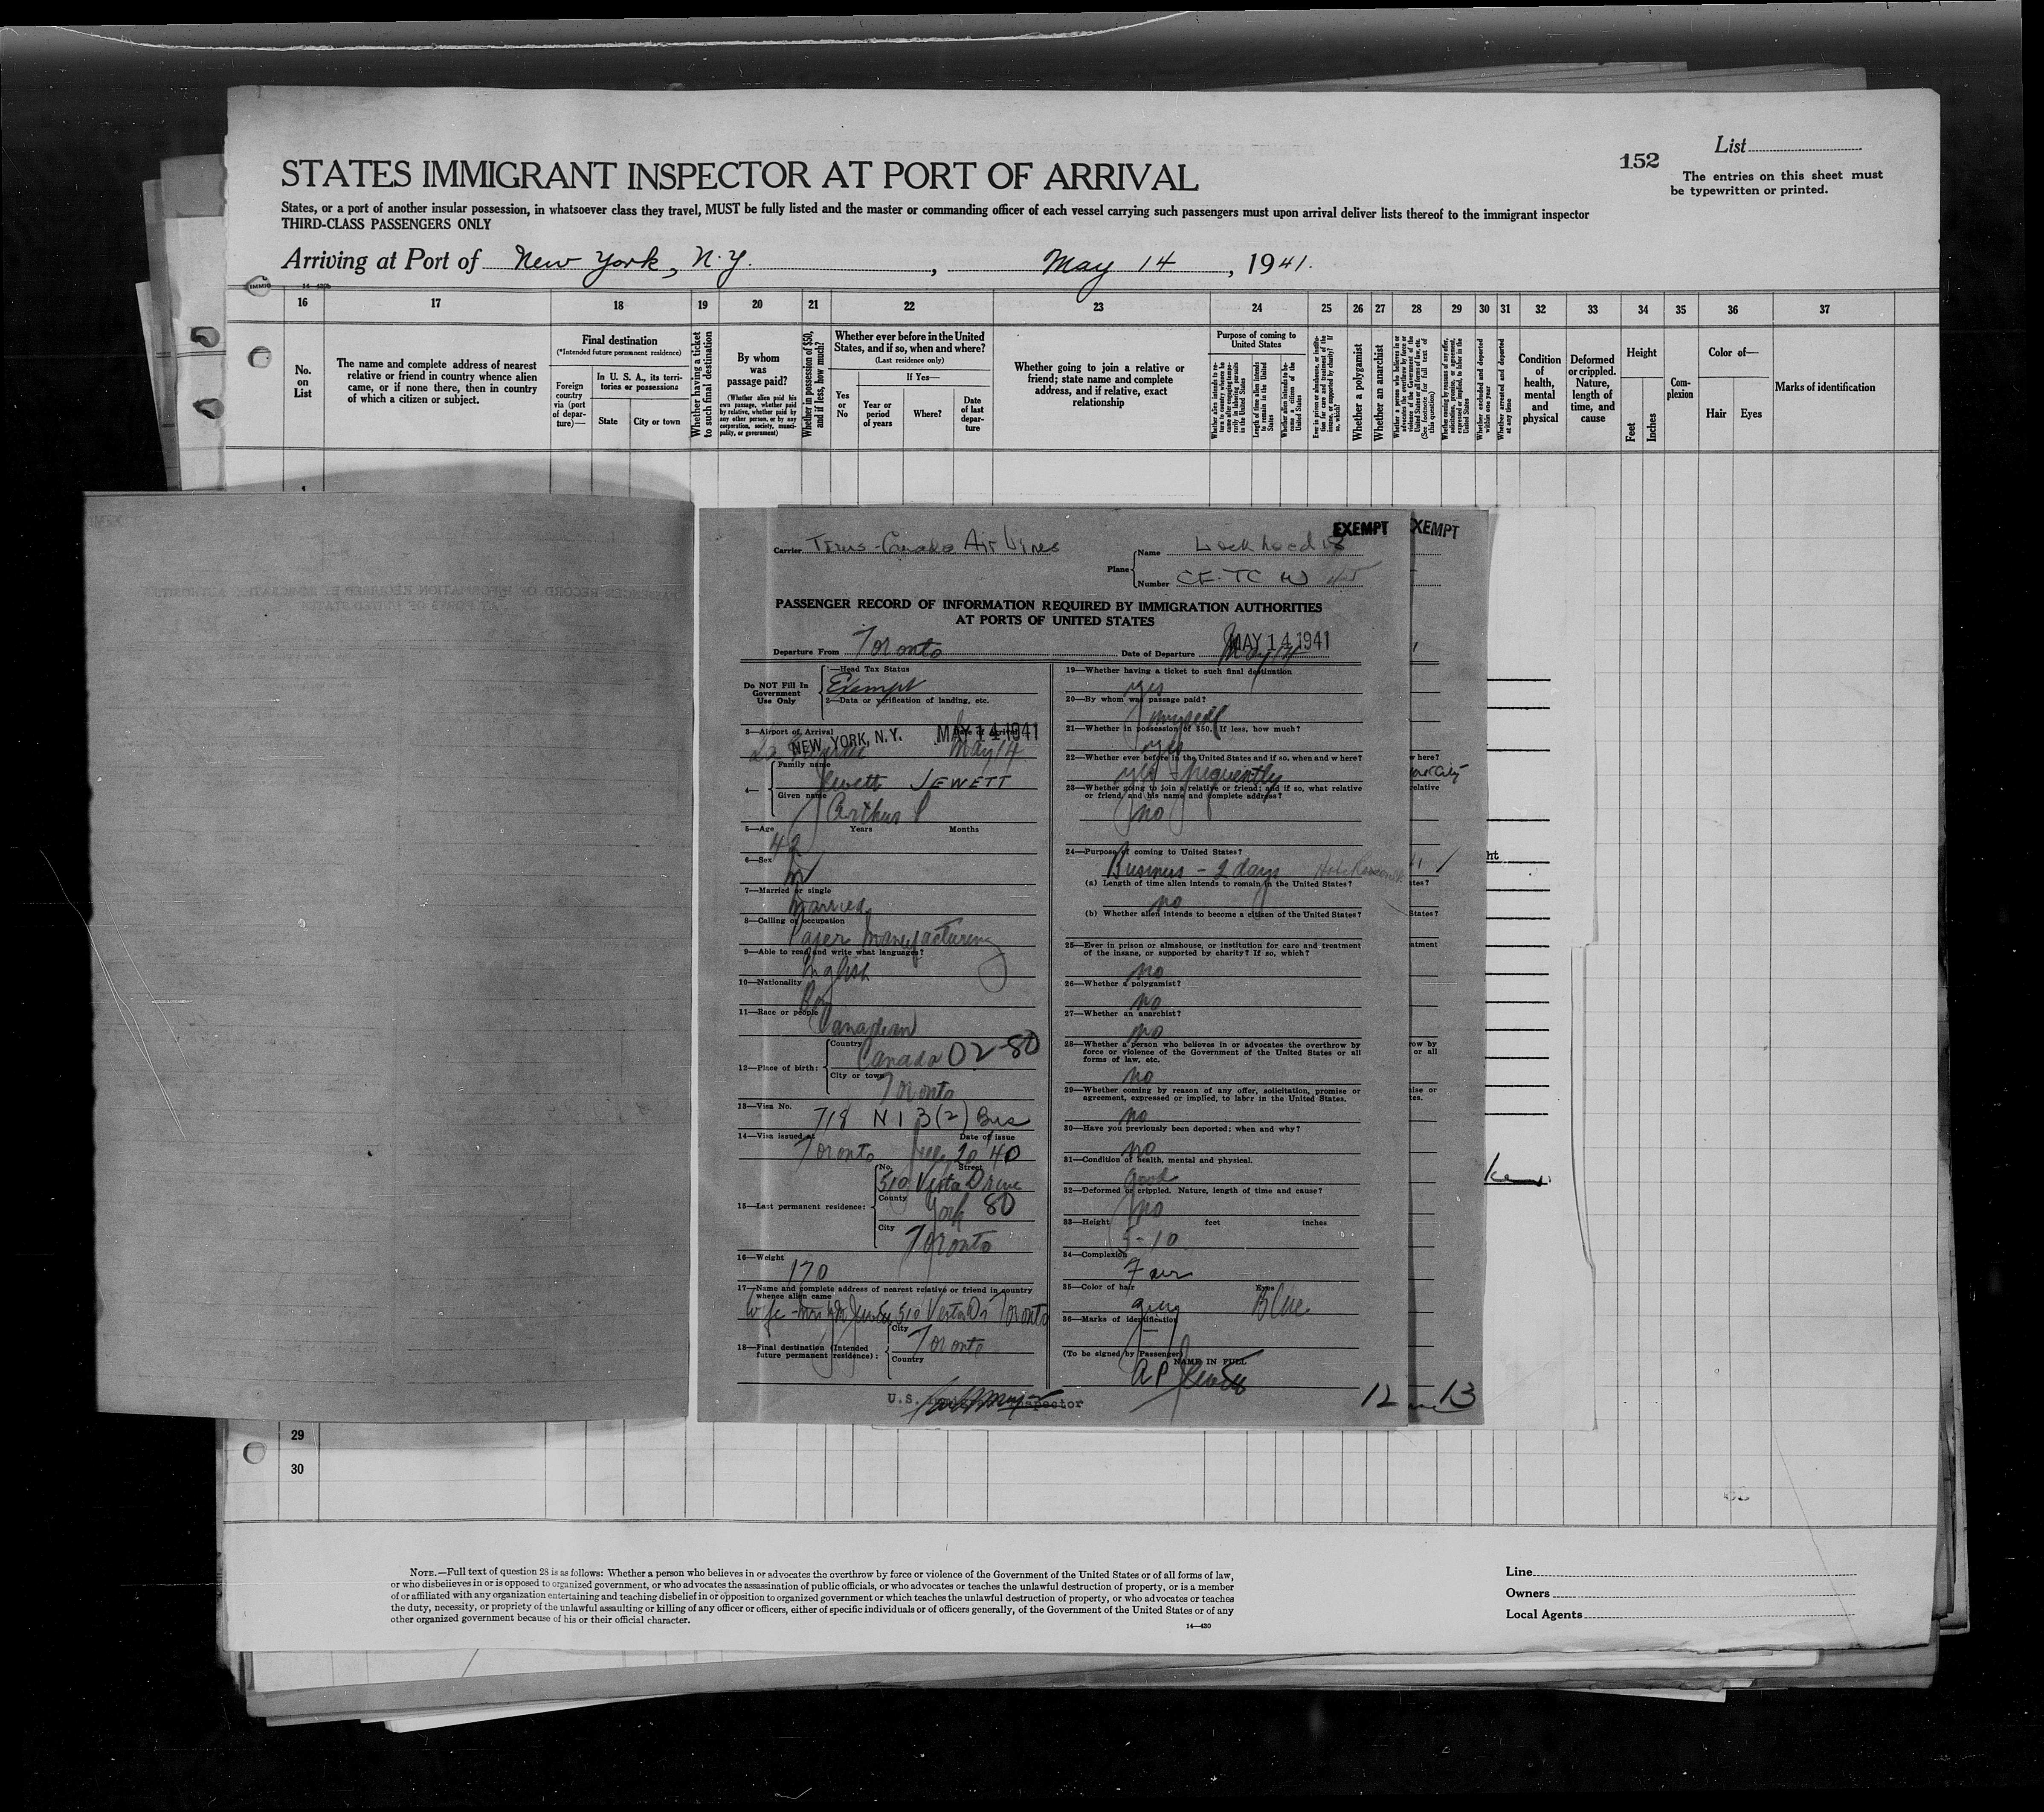 List
152
The entries on this sheet must
be typewritten or printed.
STATES IMMIGRANT INSPECTOR AT PORT OF ARRIVAL
States, or a port of another insular possession, in whatsoever class they travel, MUST be fully listed and the master or commanding officer of each vessel carrying such passengers must upon arrival deliver lists thereof to the immigrant inspector
THIRD-CLASS PASSENGERS ONLY
Arriving at Port of New York, N.Y. , May 14 , 1941.
16 17 18 19 20 21 22 23 24 25 26 27 28 29 30 31 32 33 34 35 36 37
No. on List
The name and complete address of nearest
relative or friend in country whence alien
came, or if none there, then in country
of which a citizen or subject.
Final destination
(*Intended future permanent residence)
Foreign country via (port of departure)—
In U. S. A., its territories or possessions
State
City or town
Whether having a ticket to such final destination
By whom was passage paid?
(Whether alien paid his own passage, whether paid by relative, whether paid by any other person, or by any corporation, society, municipality, or government)
Whether in possession of $50, and if less, how much?
Whether ever before in the United States, and if so, when and where?
(Last residence only)
Yes or No
If Yes—
Year or period of years
Where?
Date of last departure
Whether going to join a relative or
friend; state name and complete
address, and if relative, exact
relationship
Purpose of coming to United States
Whether alien intends to return to country whence he came after engaging temporarily in laboring pursuits in the United States
Length of time alien intends to remain in the United States
Whether alien intends to become a citizen of the United States
Whether a polygamist
Whether an anarchist
Whether excluded and deported within one year
Whether arrested and deported at any time
Condition of health, mental and physical
Deformed or crippled. Nature, length of time, and cause
Height
Feet
Inches
Complexion
Color of—
Hair
Eyes
Marks of identification
EXEMPT
EXEMPT
Carrier Trans-Canada Air Lines
Plane
Name Lockheed 18
Number CF-TC W
PASSENGER RECORD OF INFORMATION REQUIRED BY IMMIGRATION AUTHORITIES
AT PORTS OF UNITED STATES
Departure From Toronto
Date of Departure May 14
MAY 14 1941
Do NOT Fill In
Government
Use Only
1—Head Tax Status
Exempt
2—Data or verification of landing, etc.
3—Airport of Arrival
NEW YORK, N.Y. MAY 14 1941
May 14
4—
Family name
Jewett JEWETT
Given name
Arthur P
5—Age Years Months
42
6—Sex
M
7—Married or single
Married
8—Calling or occupation
Paper Manufacturing
9—Able to read and write what languages?
English
10—Nationality
11—Race or people
Canadian
12—Place of birth:
Country
Canada 02-80
City or town
Toronto
13—Visa No.
718 N I 3(2) Bus
14—Visa issued at Date of issue
Toronto 20 40
15—Last permanent residence:
No. Street
510 Vesta Drive
County
York 80
City
Toronto
16—Weight
170
17—Name and complete address of nearest relative or friend in country
whence alien came
Wife - Mrs Jewett 510 Vesta Dr Toronto
18—Final destination (Intended
future permanent residence):
City
Toronto
Country
U.S. Inspector
19—Whether having a ticket to such final destination
yes
20—By whom was passage paid?
myself
21—Whether in possession of $50. If less, how much?
yes
22—Whether ever before in the United States and if so, when and where?
yes - frequently
23—Whether going to join a relative or friend; and if so, what relative
or friend, and his name and complete address?
no
24—Purpose of coming to United States?
Business - 2 days
(a) Length of time alien intends to remain in the United States?
no
(b) Whether alien intends to become a citizen of the United States?
25—Ever in prison or almshouse, or institution for care and treatment
of the insane, or supported by charity? If so, which?
no
26—Whether a polygamist?
no
27—Whether an anarchist?
no
28—Whether a person who believes in or advocates the overthrow by
force or violence of the Government of the United States or all
forms of law, etc.
no
29—Whether coming by reason of any offer, solicitation, promise or
agreement, expressed or implied, to labor in the United States.
no
30—Have you previously been deported; when and why?
no
31—Condition of health, mental and physical.
Good
32—Deformed or crippled. Nature, length of time and cause?
no
33—Height feet inches
5-10
34—Complexion
Fair
35—Color of hair Eyes
grey Blue
36—Marks of identification
—
(To be signed by Passenger)
NAME IN FULL
A P Jewett
12
13
29
30
NOTE.—Full text of question 28 is as follows: Whether a person who believes in or advocates the overthrow by force or violence of the Government of the United States or of all forms of law,
or who disbelieves in or is opposed to organized government, or who advocates the assassination of public officials, or who advocates or teaches the unlawful destruction of property, or is a member
of or affiliated with any organization entertaining and teaching disbelief in or opposition to organized government or which teaches the unlawful destruction of property, or who advocates or teaches
the duty, necessity, or propriety of the unlawful assaulting or killing of any officer or officers, either of specific individuals or of officers generally, of the Government of the United States or of any
other organized government because of his or their official character.
14—430
Line
Owners
Local Agents